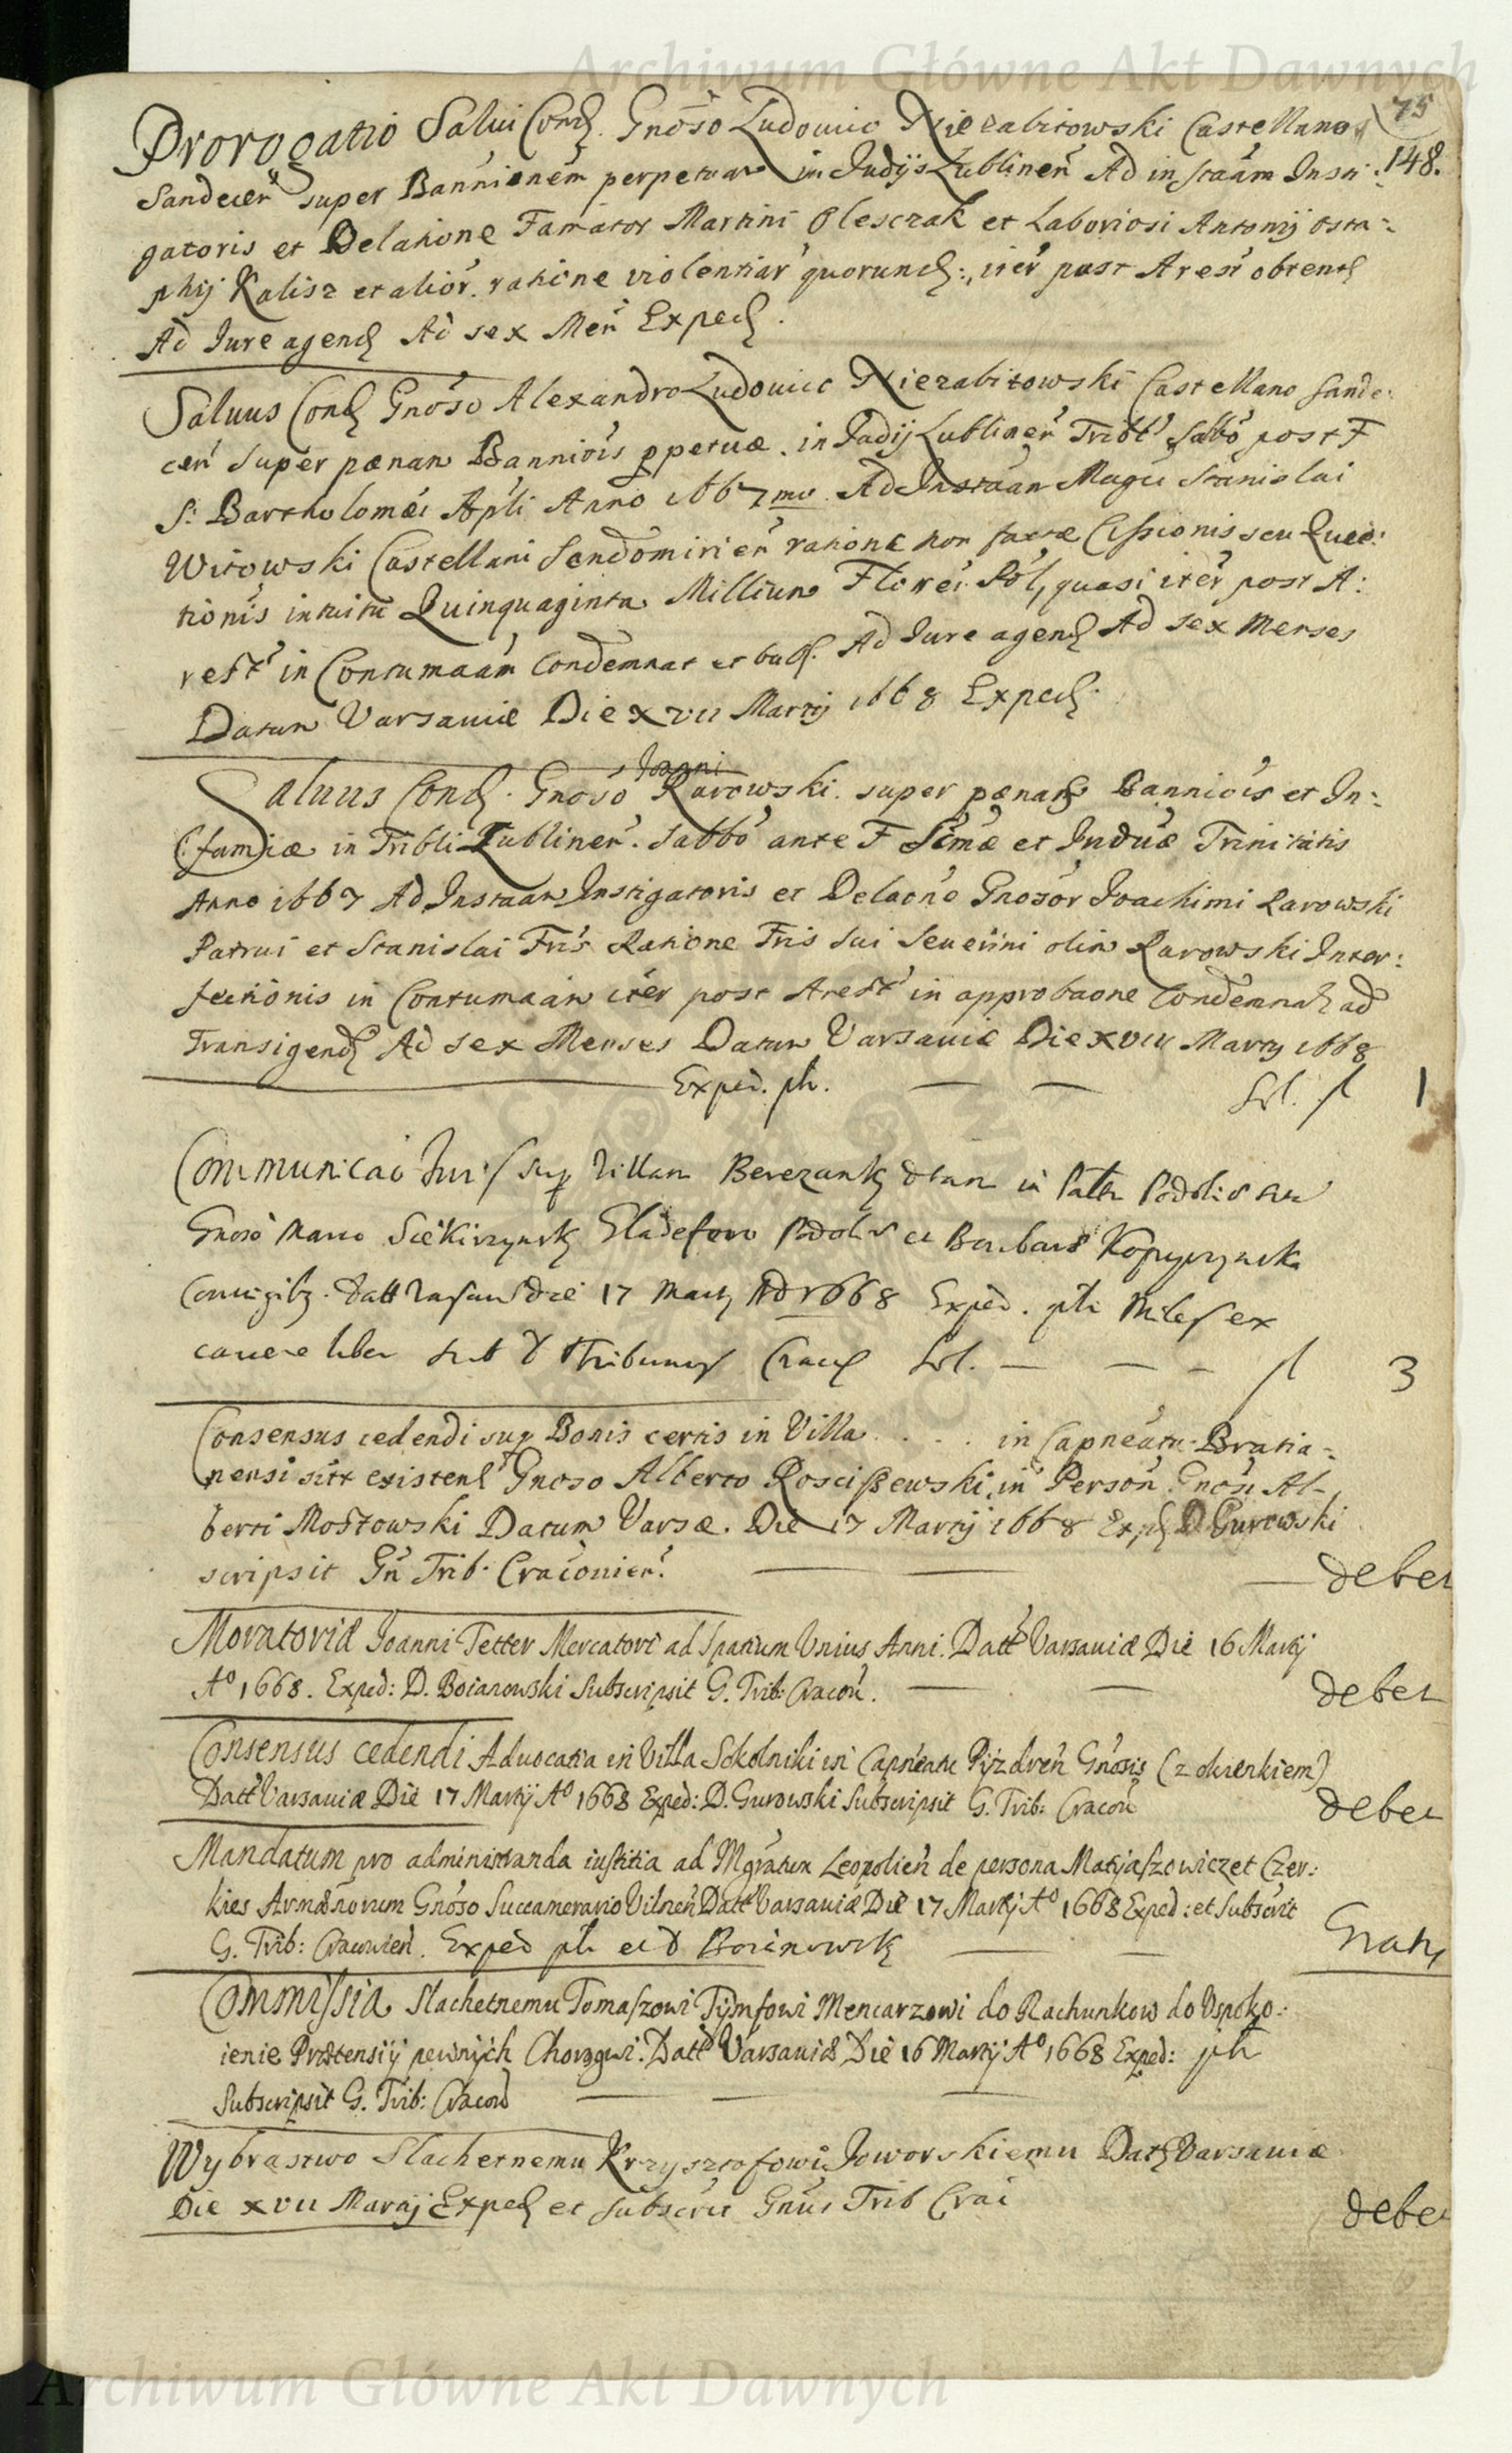 Archiwum Główne Akt Dawnych
75
148.
Prorogatio Salui Cond. Gnoso Ludouico Niezabitowski Castellano
Sandecen super Bannionem perpetuam in Judijs Lublinen Ad instaam Insti:
gatoris et Delatione Famator Martini Olesczak et Laboriosi Antonij Osta:
phij Kalisz et alior. ratione violentiar quorund:, iter post Arest obtent
Ad Jure agend Ad sex Men Exped.
Saluus Cond Gnoso Alexandro Ludouico Niezabitowski Castellano Sande:
cen super pænam Banniois ppetuæ. in Judij Lublinen Tribl Sabbo post F
S: Bartholomæi Apli Anno 1667mo. Ad Instaan Magci Stanislai
Witowski Castellani Sendomirien ratione non factæ Cessionis seu Quie:
tionis intuitu Quinquaginta Millium Floren Pol, quasi iter post A:
rest in Contumaam Condemnat et . Ad Jure agend Ad sex Menses
Datum Varsauiæ Die xvii Martij 1668 Exped.
Joanni
Saluus Cond. Gnoso Rarowski. super pænam Banniois et In:
famiæ in Tribli Lublinen. Sabbo ante F Smæ et Induæ Trinitatis
Anno 1667 Ad Instaan Instigatoris et Delaone Gnosor Joachimi Rarowski
Patrui et Stanislai Fris Ratione Fris sui Seuerini olim Rarowski Inter:
fectionis in Contumaam iter post Arest in approbaone Condemnat ad
Transigend Ad sex Menses Datum Varsauiæ Die xvii Martij 1668
Exped. ph. — — Sol. fl 1
Communicao Juris sup Villam Berezank dtam in Pattu Podoliæ
Gnoso Marco Siekirzynsk Gladifero Podoliæ et Barbaræ Kopyczynska
Coniugibz. Datt Varsauiæ die 17 Martij AD 1668 Exped. ph
cauere Tribunus Crac Sol. — — - fl 3
Consensus cedendi sup Bonis certis in Villa . . . . in Capneatu Bratia-
nensi sitt existen Gnoso Alberto Roscißewski, in Person Gnosi Al-
berti Mostowski Datum Varsæ. Die 17 Martij 1668 Exp D Gurowski
scripsit Gn Trib. Craconien. — — — deber
Moratoriæ Joanni Tetter Mercatori ad spatium Vnius Anni. Datt Varsauiæ Die 16 Martij
Ao 1668. Exped: D. Boianowski Subscripsit G. Trib: Cracou. — — deber
Consensus cedendi Aduocatia in Villa Sokolniki in Capneatu Pyzdren Gnosis (z okienkiem)
Datt Varsauiæ Die 17 Martij Ao 1668 Exped: D. Gurowski Subscripsit G. Trib: Cracou deber
Mandatum pro administranda iustitia ad Mgratum Leopolien de persona Matyjaszowicz et Czer:
kies Armænorum Gnoso Succamerario Vilnen Datt Varsauiæ Die 17 Martij Ao 1668 Exped: et Subscrit
G. Trib: Cracouien. Exped ph et D Boianowsk — — Gratis
Commissia Slachetnemu Tomaszowi Tÿmfowi Mencarzowi do Rachunkow do Vspoko:
ienie Prætensÿ pewnÿch Chorągwi. Datt Varsauiæ Die 16 Martij Ao 1668 Exped: ph
Subscripsit G. Trib: Cracou — — —
Wybrastwo Slachetnemu Krzysztofowi Jaworskiemu Dat Varsauiæ
Die xvii Martij Exped et subscrit Gnus Trib Crai deber
Archiwum Główne Akt Dawnych